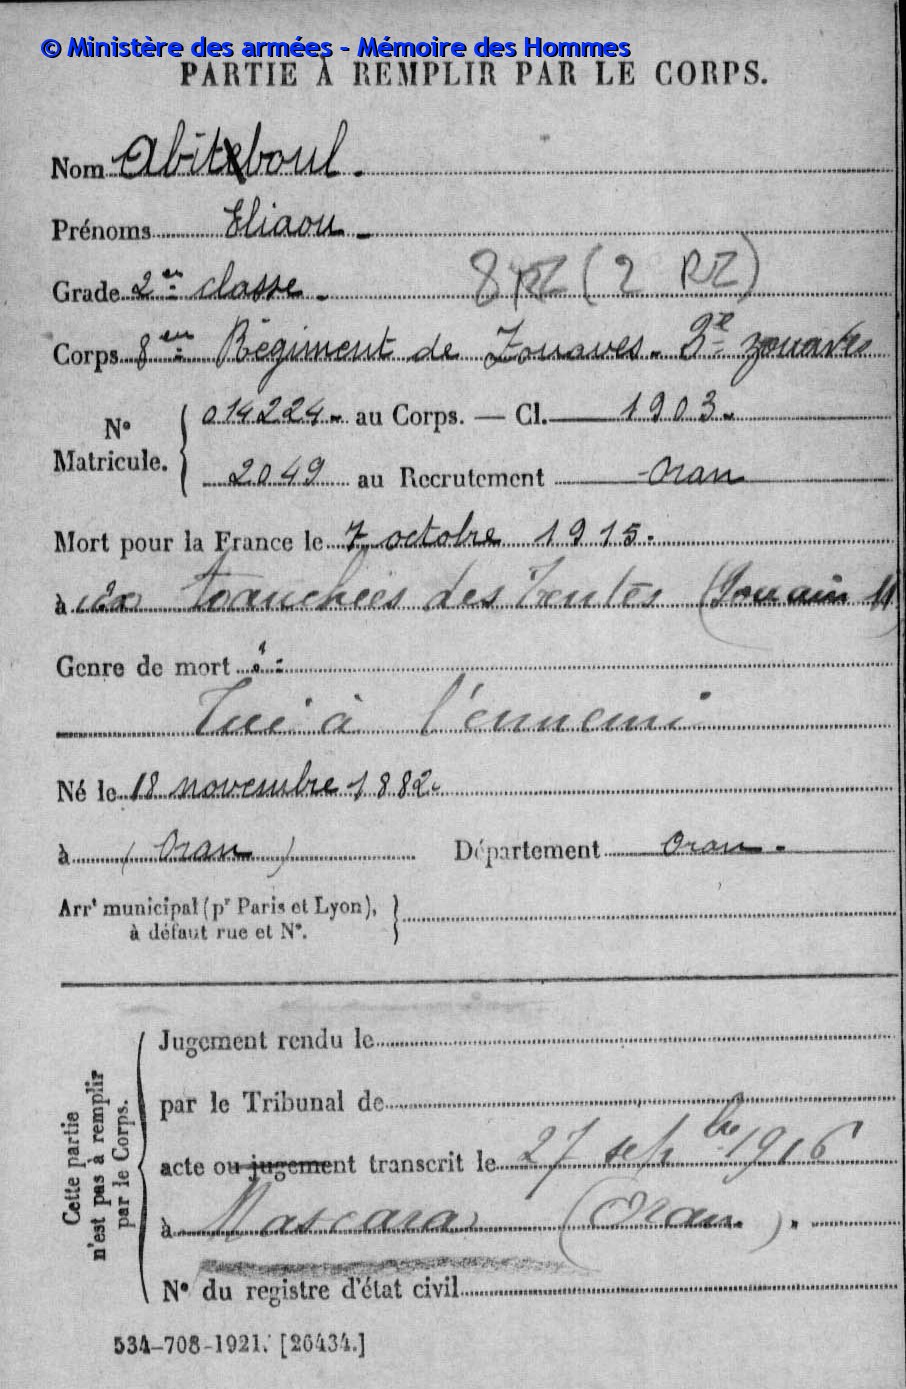 © Ministère des armées - Mémoire des Hommes
PARTIE À REMPLIR PAR LE CORPS.
Nom Abitboul.
Prénoms Eliaou
Grade 2e classe. 8 RZ (2 RZ)
Corps 8e Régiment de Zouaves. 2e zouaves
No Matricule. { 014224 au Corps. — Cl. 1903.
2049 au Recrutement Oran
Mort pour la France le 7 octobre 1915.
à tranchées des Tentes (Souain
Genre de mort :
Tué à l'ennemi
Né le 18 novembre 1882.
à (Oran) Département Oran.
Arrt municipal (pr Paris et Lyon), }
à défaut rue et No.
Cette partie n'est pas à remplir par le Corps.
Jugement rendu le
par le Tribunal de
acte ou jugement transcrit le 27 septbre 1916
à Mascara (Oran).
No du registre d'état civil
534-708-1921. [26434.]